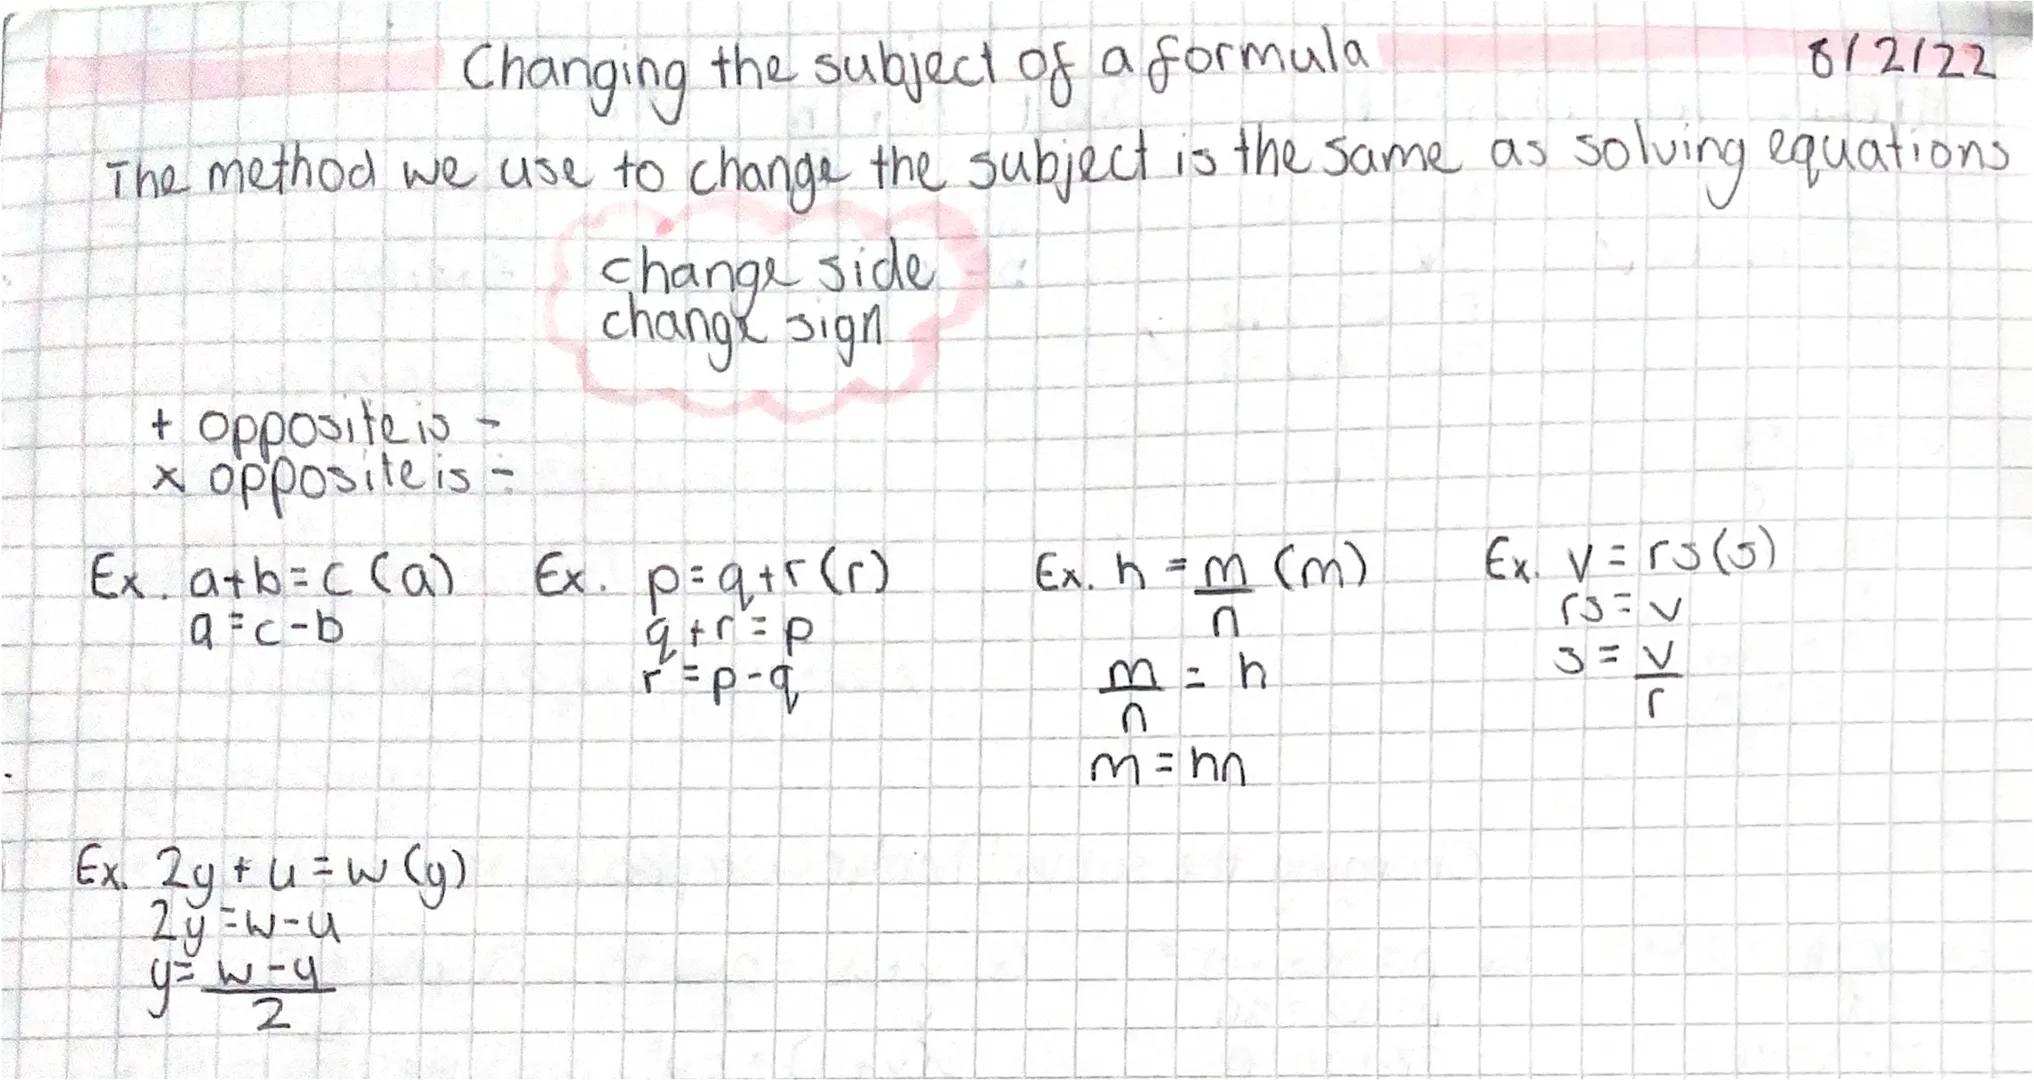 Changing the subject of a formula 8/2/22
The method we use to change the subject is the same as solving equations
change side
change sign
+ opposite is -
x opposite is ÷
Ex. a+b=c (a)
a=c-b
Ex. p=q+r (r)
q+r=p
r=p-q
Ex. h=m/n (m)
m/n=h
m=hn
Ex. v=rs(s)
rs=v
s=v/r
Ex. 2y+u=w (y)
2y=w-u
y=w-u/2